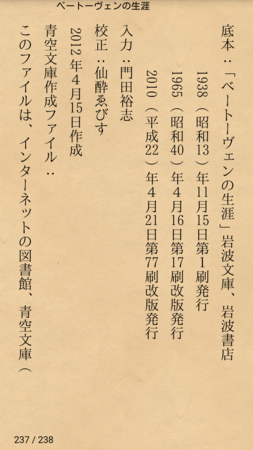 ベートーヴェンの生涯
底本：「ベートーヴェンの生涯」岩波文庫、岩波書店
1938（昭和13）年11月15日第1刷発行
1965（昭和40）年4月16日第17刷改版発行
2010（平成22）年4月21日第77刷改版発行
入力：門田裕志
校正：仙酔ゑびす
2012年4月15日作成
青空文庫作成ファイル：
このファイルは、インターネットの図書館、青空文庫（
237 / 238